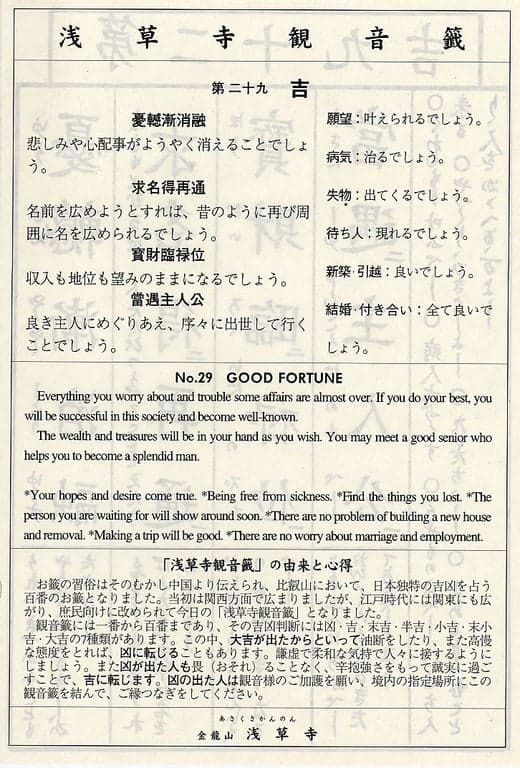 浅草寺観音籤
第二十九 吉
憂轗漸消融
悲しみや心配事がようやく消えることでしょ
う。
求名得再通
名前を広めようとすれば、昔のように再び周
囲に名を広められるでしょう。
寳財臨禄位
収入も地位も望みのままになるでしょう。
當遇主人公
良き主人にめぐりあえ、序々に出世して行く
ことでしょう。
願望：叶えられるでしょう。
病気：治るでしょう。
失物：出てくるでしょう。
待ち人：現れるでしょう。
新築·引越：良いでしょう。
結婚·付き合い：全て良いで
しょう。
No.29 GOOD FORTUNE
Everything you worry about and trouble some affairs are almost over. If you do your best, you
will be successful in this society and become well-known.
The wealth and treasures will be in your hand as you wish. You may meet a good senior who
helps you to become a splendid man.
*Your hopes and desire come true. *Being free from sickness. *Find the things you lost. *The
person you are waiting for will show around soon. *There are no problem of building a new house
and removal. *Making a trip will be good. *There are no worry about marriage and employment.
「浅草寺観音籤」の由来と心得
お籤の習俗はそのむかし中国より伝えられ、比叡山において、日本独特の吉凶を占う
百番のお籤となりました。当初は関西方面で広まりましたが、江戸時代には関東にも広
がり、庶民向けに改められて今日の「浅草寺観音籤」となりました。
観音籤には一番から百番まであり、その吉凶判断には凶·吉·末吉·半吉·小吉·末小
吉·大吉の7種類があります。この中、大吉が出たからといって油断をしたり、また高慢
な態度をとれば、凶に転じることもあります。謙虚で柔和な気持で人々に接するように
しましょう。また凶が出た人も畏（おそれ）ることなく、辛抱強さをもって誠実に過ご
すことで、吉に転じます。凶の出た人は観音様のご加護を願い、境内の指定場所にこの
観音籤を結んで、ご縁つなぎをしてください。
あさくさかんのん
金龍山 浅草寺